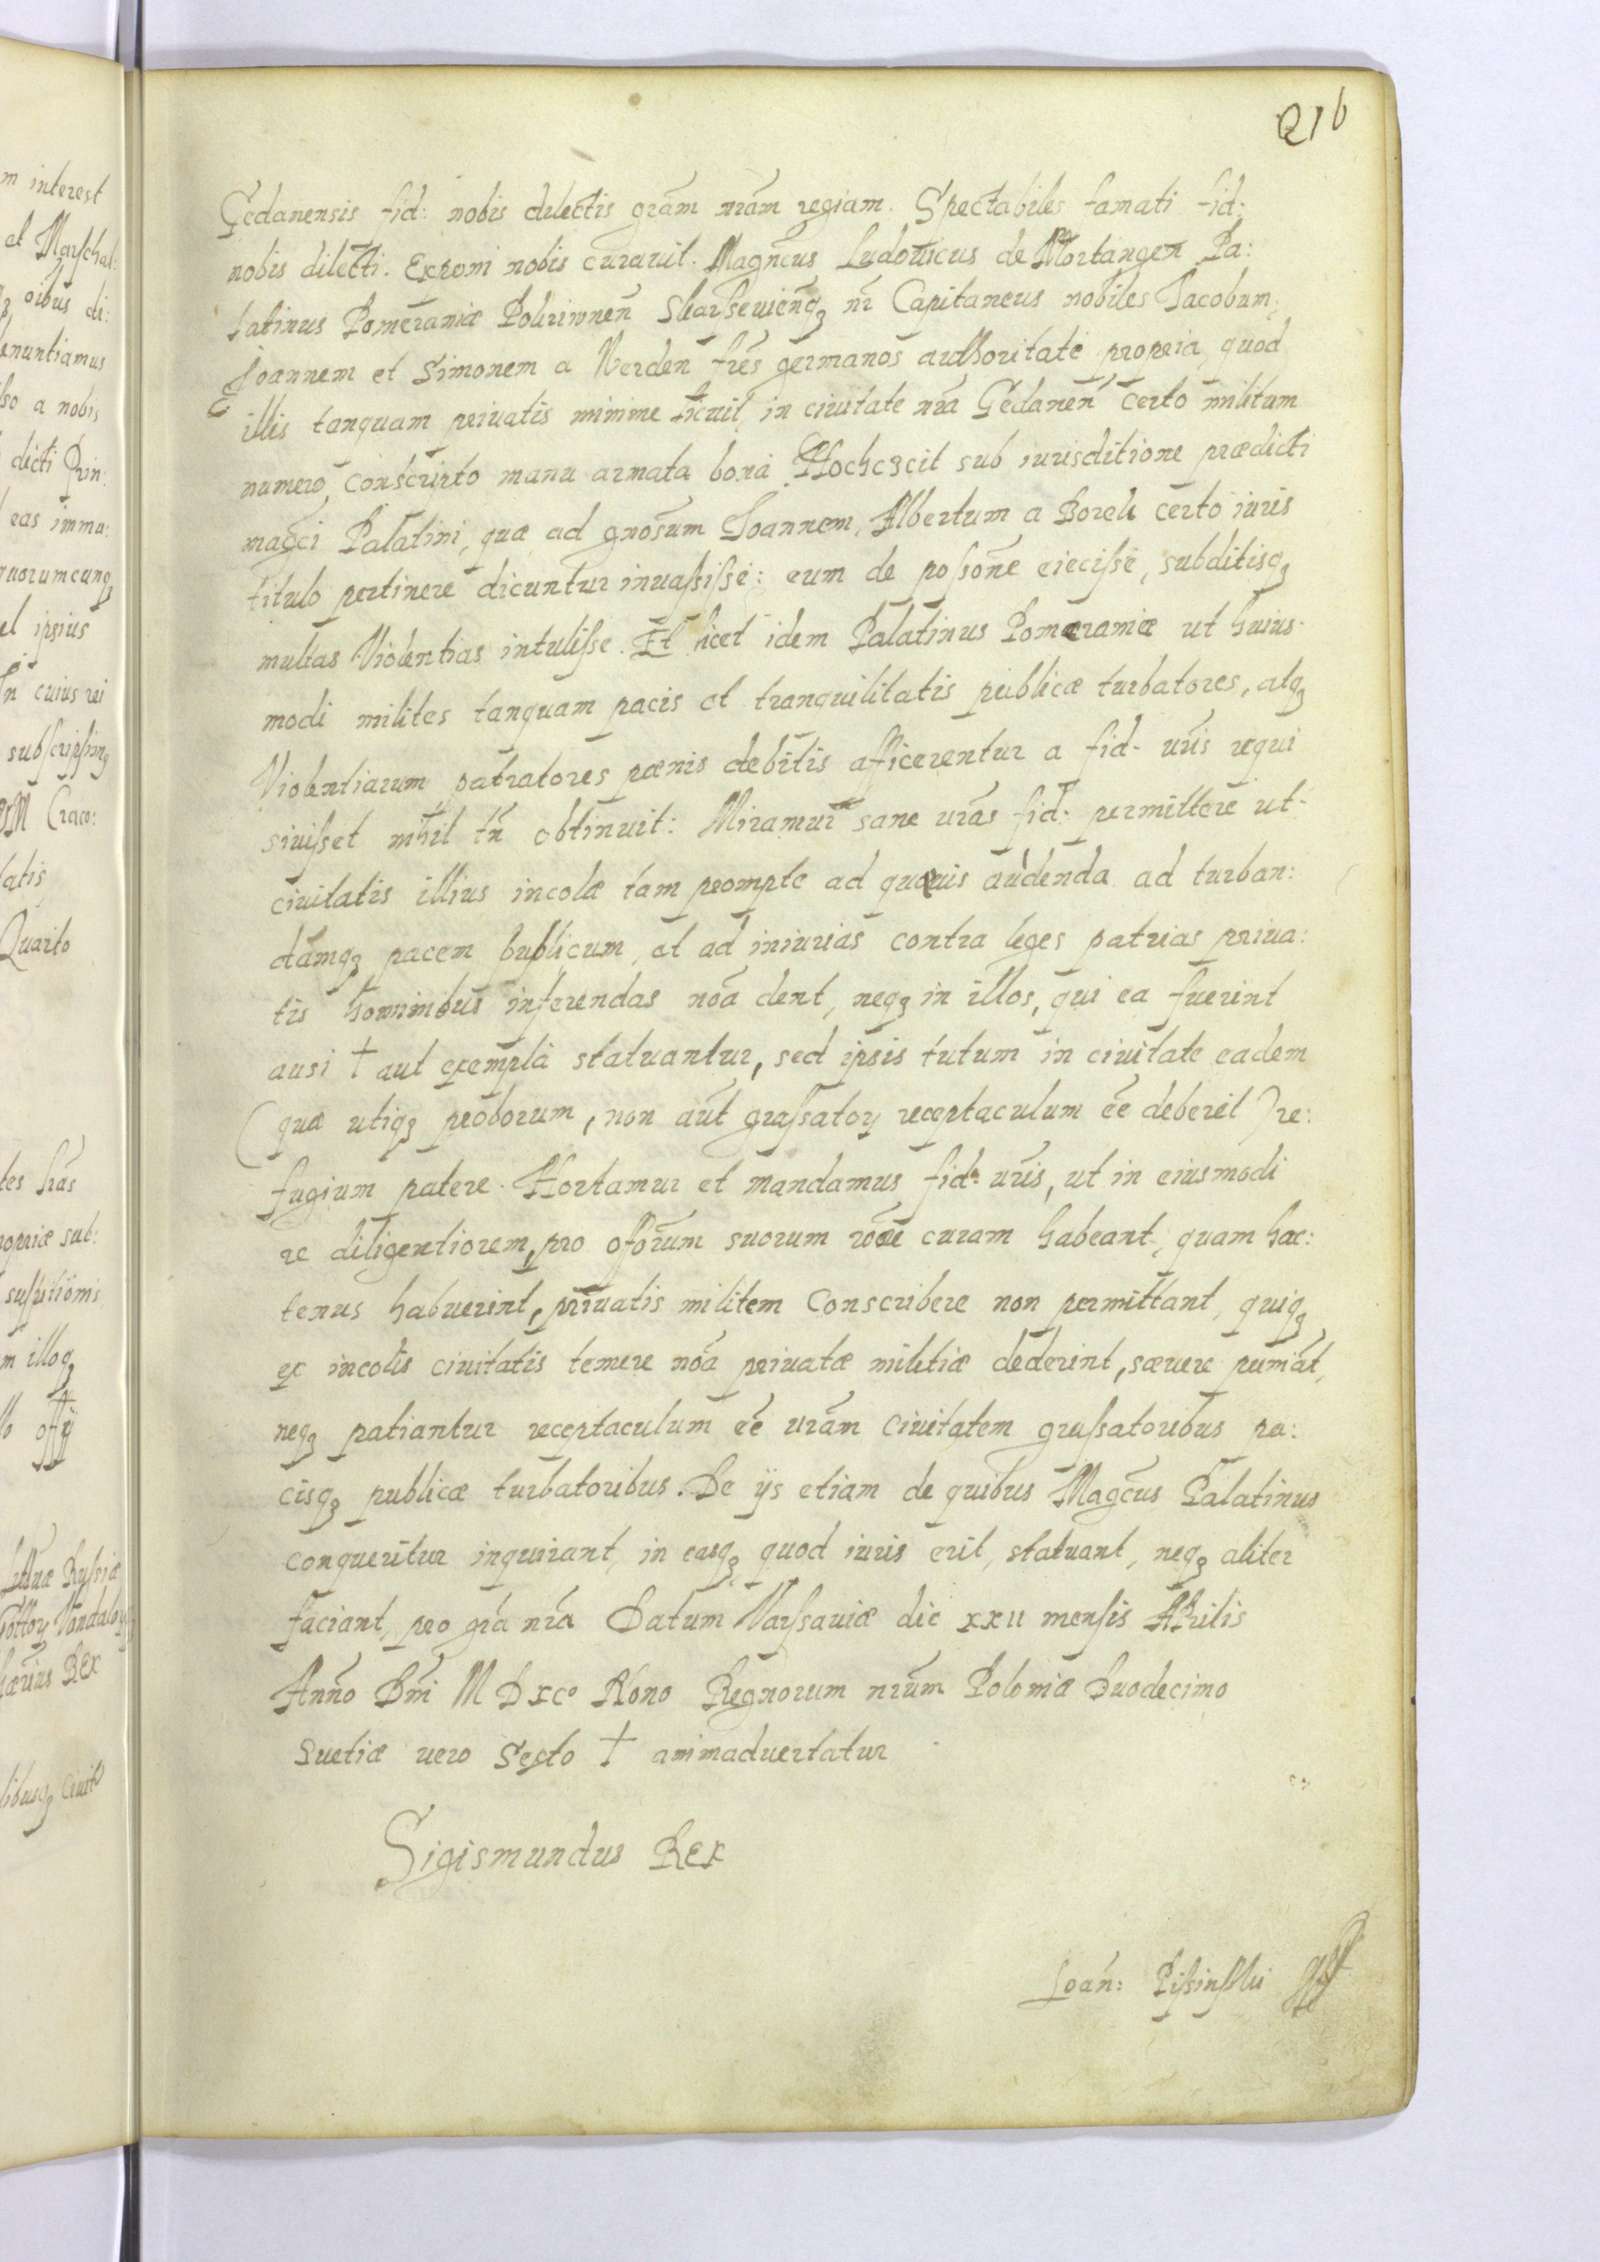 216
Gedanensis fid: nobis dilectis grãm nrãm regiam. Spectabiles famati fid:
nobis dilecti. Exponi nobis curavit. Magncus Ludowicus de Mortangen Pa:
latinus Pomeraniæ Pokriwneñ Skarseuieñqꝫ nr̃ Capitaneus nobiles Jacobum,
Joannem et Simonem a Verden frẽs germanos authoritate propria, quod
illis tanquam priuatis minime licuit, in ciuitate nrã Gedaneñ certo militum
numero conscripto manu armata bona Hochczeit sub iurisditione prædicti
magci Palatini, quæ ad gnosum Joannem, Albertum a Borek certo iuris
titulo pertinere dicuntur inuasisse: eum de possõne eiecisse, subditisqꝫ
multas Violentias intulisse. Et licet idem Palatinus Pomeraniæ ut huius-
modi milites tanquam pacis et tranquilitatis publicæ turbatores, atqꝫ
Violentiarum patratores pœnis debitis afficerentur a fid. uris requi
siuisset nihil tñ obtinuit: Miramur sane uras fid: permittere ut
ciuitatis illius incolæ tam prompte ad quæuis audenda ad turban:
damqꝫ pacem publicum, et ad iniurias contra leges patrias priua:
tis hominibus inferendas noã dent, neqꝫ in illos, qui ea fuerint
ausi † aut exempla statuantur, sed ipsis tutum in ciuitate eadem
(quæ utiqꝫ proborum, non aũt grassatoꝝ receptaculum eẽ deberet) re:
fugium patere. Hortamur et mandamus fid. uris, ut in eiusmodi
re diligentiorem, pro offorum suorum rõne curam habeant, quam hac:
tenus habuerint, priuatis militem Conscribere non permittant, quiqꝫ
ex incolis ciuitatis temere noã priuatæ militiæ dederint, sæuere puniãt,
neqꝫ patiantur receptaculum eẽ urãm Ciuitatem grassatoribus pa:
cisqꝫ publicæ turbatoribus. De ijs etiam de quibus Magcus Palatinus
conqueritur inquirant, in easqꝫ quod iuris erit, statuant, neqꝫ aliter
faciant, pro grã nrã Datum Varsauiæ die xxii mensis Aprilis
Anno Dñi MDxco Nono Regnorum nrũm Poloniæ Duodecimo
Suetiæ uero Sexto † animaduertatur
Sigismundus Rex
Joañ: